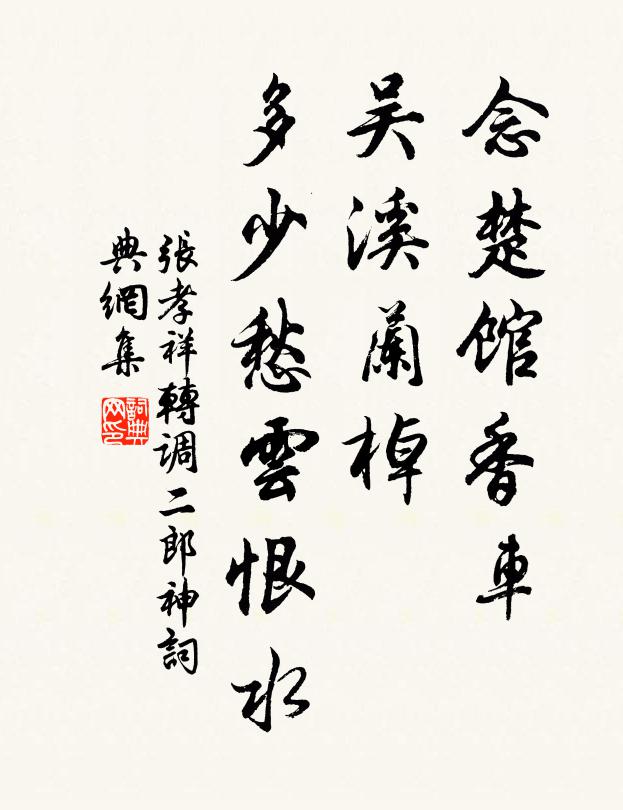 念楚館香車
吳溪蘭棹
多少愁雲恨水
張孝祥轉調二郎神詞
典網集
詞典網印